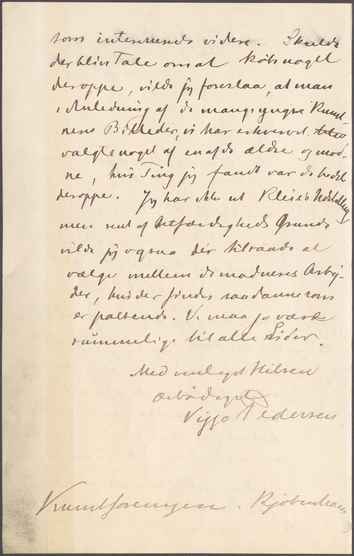 som intermends videre. Skulde
der blive Tale om at købe noget
deroppe, vilde jeg foreslaa, at man
i Anledning af de mange yngre Kunst-
neres Billeder, vi har erhvervet,
valgte noget af en af de ældre og mod-
ne, hvis Ting jeg fandt var de bedste
deroppe. Jeg har ikke set Kleis's Udstilling
men rent af Retfærdigheds Grunde
vilde jeg ogsaa der tilraade at
vælge mellem de modneres Arbej-
der, hvis der findes saadanne som
er passende. Vi maa jo være
rummelige til alle Sider.
Med venligst Hilsen
ærbødigst
Viggo Pedersen
Kunstforeningen. Kjøbenhavn